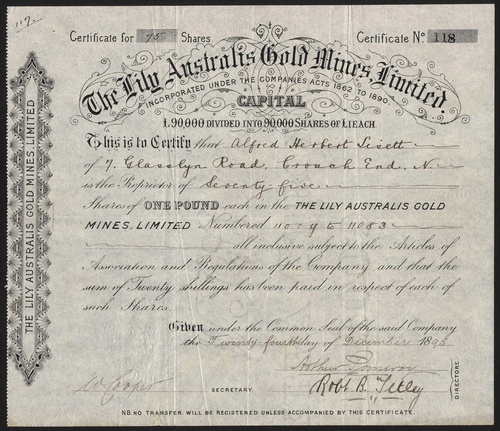 117.
Certificate for 75 Shares Certificate No 118
The Lily Australis Gold Mines, Limited.
INCORPORATED UNDER THE COMPANIES ACTS 1862 TO 1890.
CAPITAL
£90,000 DIVIDED INTO 90,000 SHARES OF £1 EACH
This is to Certify that Alfred Herbert
of 7, Glasslyn Road, Crouch End, N.
is the Proprietor of Seventy-five
Shares of ONE POUND each in the THE LILY AUSTRALIS GOLD
MINES, LIMITED Numbered 11009 to 11083
all inclusive subject to the Articles of
Association and Regulations of the Company and that the
sum of Twenty Shillings has been paid in respect of each of
such Shares.
Given under the Common Seal of the said Company
the Twenty-fourth day of December 1895
Arthur Pomeroy
Robt. B. Tetley
DIRECTORS
W Cooper
SECRETARY
NB. NO TRANSFER WILL BE REGISTERED UNLESS ACCOMPANIED BY THIS CERTIFICATE.
THE LILY AUSTRALIS GOLD MINES, LIMITED